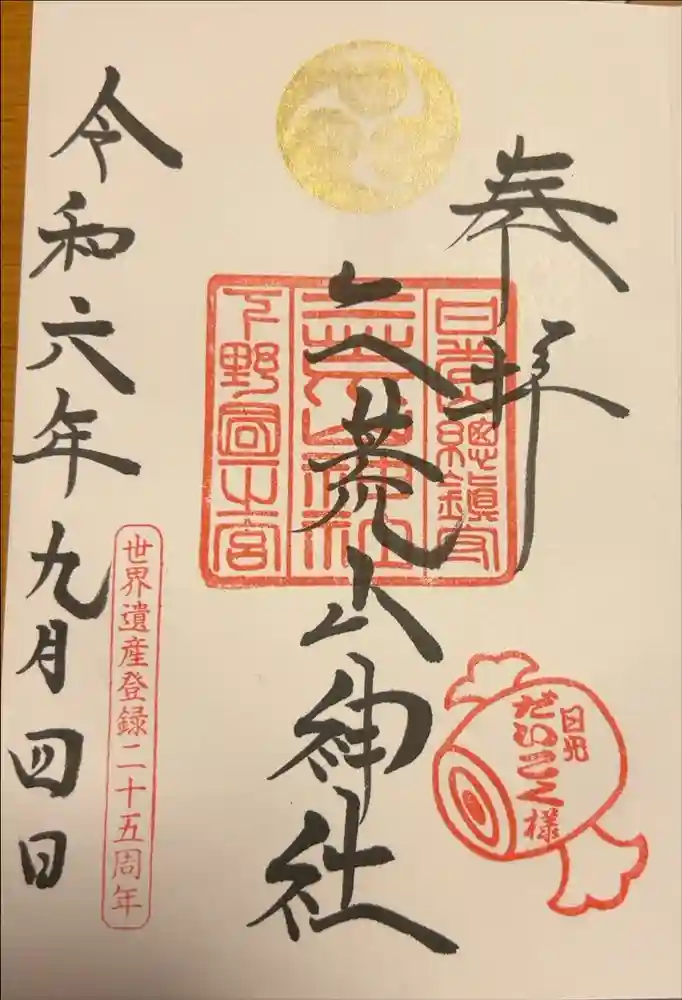 奉拝
日光總鎮守
二荒山神社
下野國一之宮
二荒山神社
日光
だいこく様
令和六年九月四日
世界遺産登録二十五周年